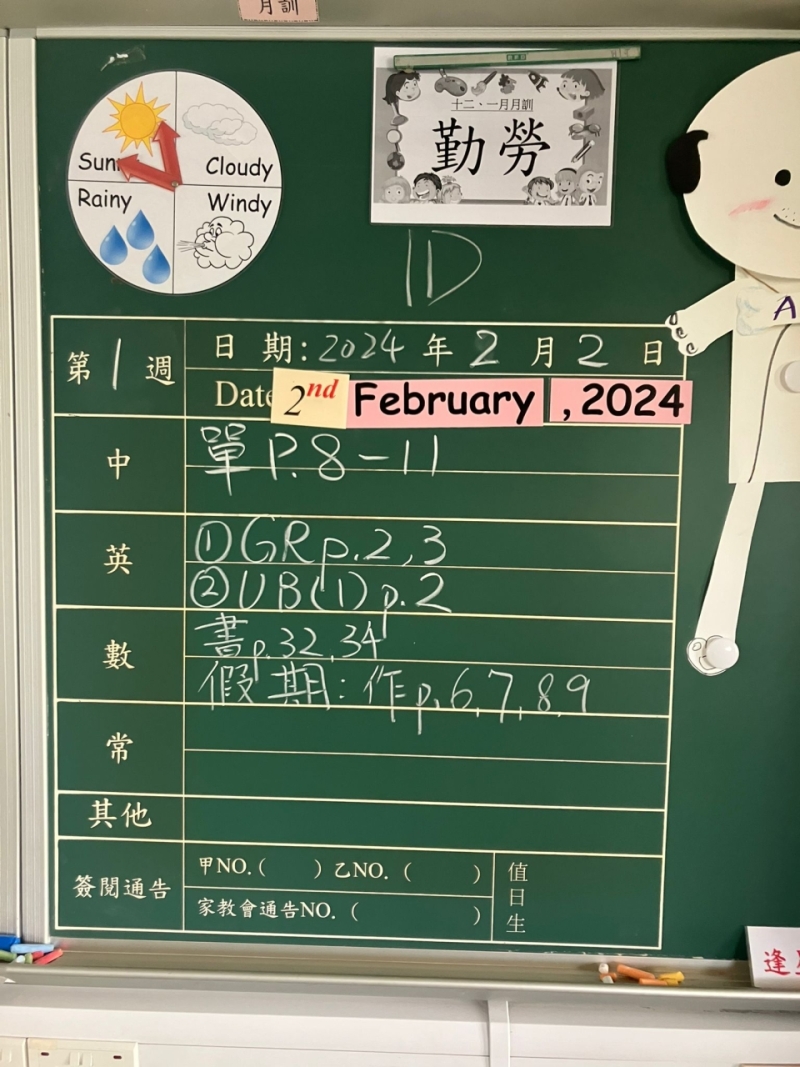 月訓
十二、一月月訓
勤勞
Cloudy
Rainy
Windy
1D
第1週
日期:2024年2月2日
Date
2nd February , 2024
A
中
單P.8-11
英
①GR p.2,3
②UB(1)p.2
數
書p.32,34
假期:作p.6,7,8,9
常
其他
簽閱通告
甲NO.( )乙NO.( )
家教會通告NO.( )
值日生
逢